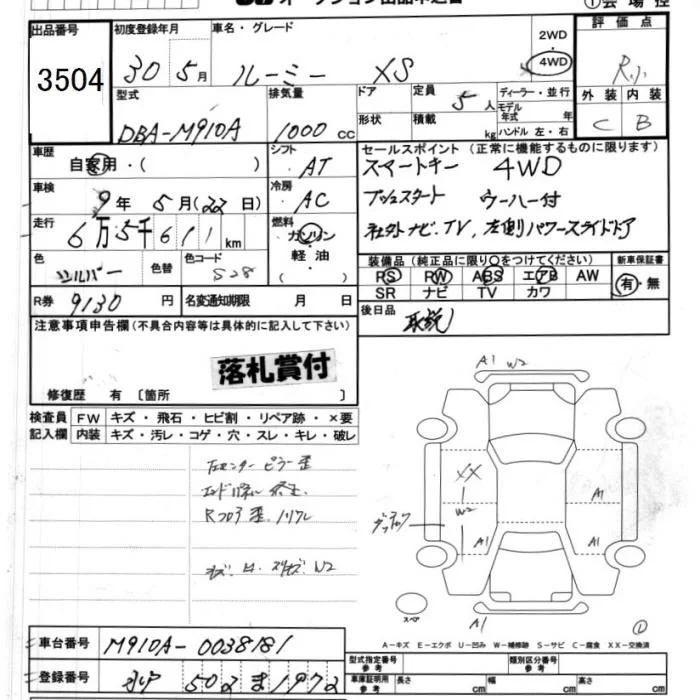 オークション出品申込書
①会場控
出品番号
3504
初度登録年月
30 5月
車名・グレード
ルーミー XS
2WD
4WD
評価点
R.1
型式
DBA-M910A
排気量
1000 cc
ドア
形状
定員
5人
積載
kg
ディーラー・並行
モデル
年式 年
ハンドル 左・右
外装 内装
C B
車歴
自家用・( )
シフト
AT
セールスポイント (正常に機能するものに限ります)
スマートキー 4WD
プッシュスタート ウーハー付
社外ナビ、TV、左側パワースライドドア
車検
9年 5月 (22日)
冷房
AC
走行
6万5千611km
燃料
ガソリン
軽油
( )
色
シルバー
色替
色コード
S28
装備品 (純正品に限り○をつけてください)
PS PW ABS エアB AW
SR ナビ TV カワ
新車保証書
有・無
R券
9130円
名変通知期限 月 日
後日品
取説
注意事項申告欄 (不具合内容等は具体的に記入して下さい)
落札賞付
修復歴 有 〔箇所 〕
検査員
記入欄
FW キズ・飛石・ヒビ割・リペア跡・×要
内装 キズ・汚レ・コゲ・穴・スレ・キレ・破レ
左センターピラー歪
エンドパネル
Rフロア歪
W2
A1 W2
XX
W2
A1
A1
A1
A1
スペア
①
A-キズ E-エクボ U-凹み W-補修跡 S-サビ C-腐食 XX-交換済
車台番号
M910A-0038181
登録番号
502 ま1972
型式指定番号
参考
類別区分番号
参考
車庫証明用
参考
長さ cm
幅 cm
高さ cm